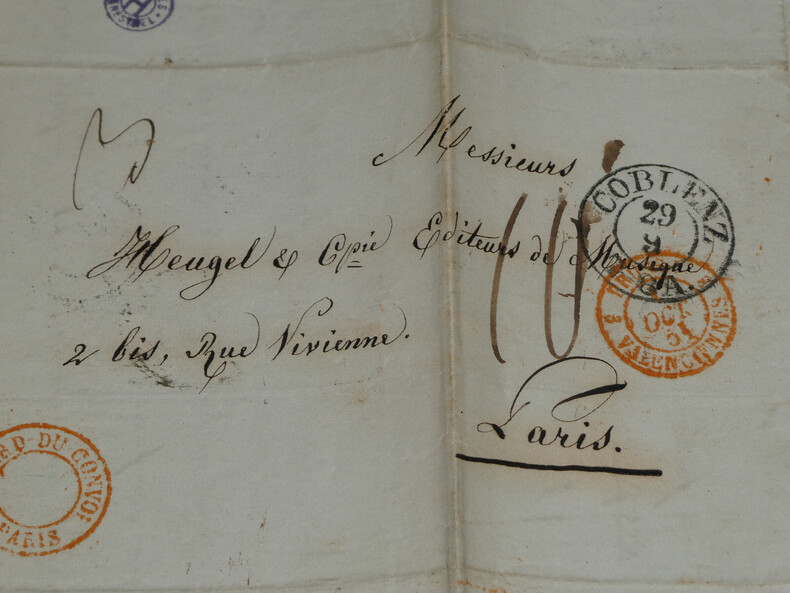 Messieurs
Heugel & Cpie Editeurs de Musique
2 bis, Rue Vivienne.
Paris.
COBLENZ
29
9
8A.
OCT
51
3 VALENCIENNES 3
DU CONVOI
PARIS